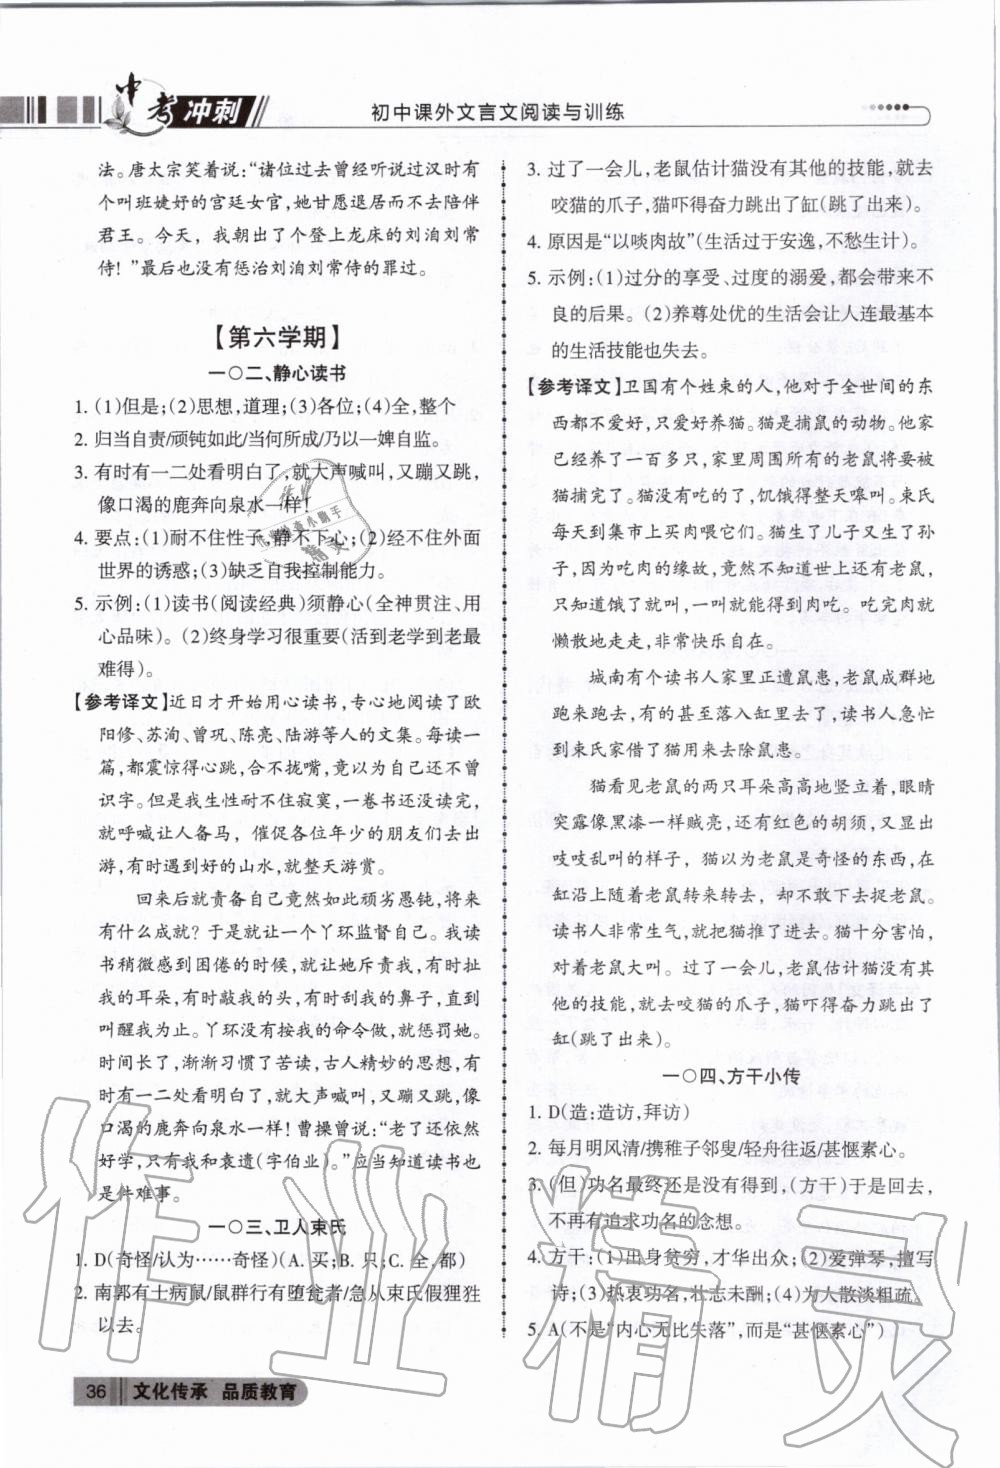 中考冲刺
初中课外文言文阅读与训练
法。唐太宗笑着说:“诸位过去曾经听说过汉时有
个叫班婕妤的宫廷女官,她甘愿退居而不去陪伴
君王。今天，我朝出了个登上龙床的刘洎刘常
侍!”最后也没有惩治刘洎刘常侍的罪过。
【第六学期】
一〇二、静心读书
1. (1)但是;(2)思想,道理;(3)各位;(4)全,整个
2. 归当自责/顽钝如此/当何所成/乃以一婢自监。
3. 有时有一二处看明白了,就大声喊叫,又蹦又跳,
像口渴的鹿奔向泉水一样!
4. 要点:(1)耐不住性子,静不下心;(2)经不住外面
世界的诱惑;(3)缺乏自我控制能力。
5. 示例:(1)读书(阅读经典)须静心(全神贯注、用
心品味)。(2)终身学习很重要(活到老学到老最
难得)。
【参考译文】近日才开始用心读书,专心地阅读了欧
阳修、苏洵、曾巩、陈亮、陆游等人的文集。每读一
篇,都震惊得心跳,合不拢嘴,竟以为自己还不曾
识字。但是我生性耐不住寂寞,一卷书还没读完,
就呼喊让人备马，催促各位年少的朋友们去出
游,有时遇到好的山水,就整天游赏。
回来后就责备自己竟然如此顽劣愚钝,将来
有什么成就?于是就让一个丫环监督自己。我读
书稍微感到困倦的时候,就让她斥责我,有时扯
我的耳朵,有时敲我的头,有时刮我的鼻子,直到
叫醒我为止。丫环没有按我的命令做,就惩罚她。
时间长了,渐渐习惯了苦读,古人精妙的思想,有
时有一二处看明白了,就大声喊叫,又蹦又跳,像
口渴的鹿奔向泉水一样!曹操曾说:“老了还依然
好学,只有我和袁遗(字伯业)。”应当知道读书也
是件难事。
一〇三、卫人束氏
1. D(奇怪/认为……奇怪)(A. 买;B. 只;C. 全,都)
2. 南郭有士病鼠/鼠群行有堕瓮者/急从束氏假狸狌
以去。
3. 过了一会儿,老鼠估计猫没有其他的技能,就去
咬猫的爪子,猫吓得奋力跳出了缸(跳了出来)。
4. 原因是“以啖肉故”(生活过于安逸,不愁生计)。
5. 示例:(1)过分的享受、过度的溺爱,都会带来不
良的后果。(2)养尊处优的生活会让人连最基本
的生活技能也失去。
【参考译文】卫国有个姓束的人,他对于全世间的东
西都不爱好,只爱好养猫。猫是捕鼠的动物。他家
已经养了一百多只,家里周围所有的老鼠将要被
猫捕完了。猫没有吃的了,饥饿得整天嗥叫。束氏
每天到集市上买肉喂它们。猫生了儿子又生了孙
子,因为吃肉的缘故,竟然不知道世上还有老鼠,
只知道饿了就叫,一叫就能得到肉吃。吃完肉就
懒散地走走,非常快乐自在。
城南有个读书人家里正遭鼠患,老鼠成群地
跑来跑去,有个老鼠落入缸里去了,读书人急忙
到束氏家借了猫用来去除鼠患。
猫看见老鼠的两只耳朵高高地竖立着,眼睛
突露像黑漆一样贼亮,还有红色的胡须,又显出
吱吱乱叫的样子，猫以为老鼠是奇怪的东西,在
缸沿上随着老鼠转来转去，却不敢下去捉老鼠。
读书人非常生气,就把猫推了进去。猫十分害怕,
对着老鼠大叫。过了一会儿,老鼠估计猫没有其
他的技能,就去咬猫的爪子,猫吓得奋力跳出了
缸(跳了出来)。
一〇四、方干小传
1. D(造:造访,拜访)
2. 每月明风清/携稚子邻叟/轻舟往返/甚惬素心。
3. (但)功名最终还是没有得到,(方干)于是回去,
不再有追求功名的念想。
4. 方干:(1)出身贫穷,才华出众;(2)爱弹琴,擅写
诗;(3)热衷功名,壮志未酬;(4)为人散淡粗疏。
5. A(不是“内心无比失落”,而是“甚惬素心”)
36 文化传承 品质教育
作业精灵